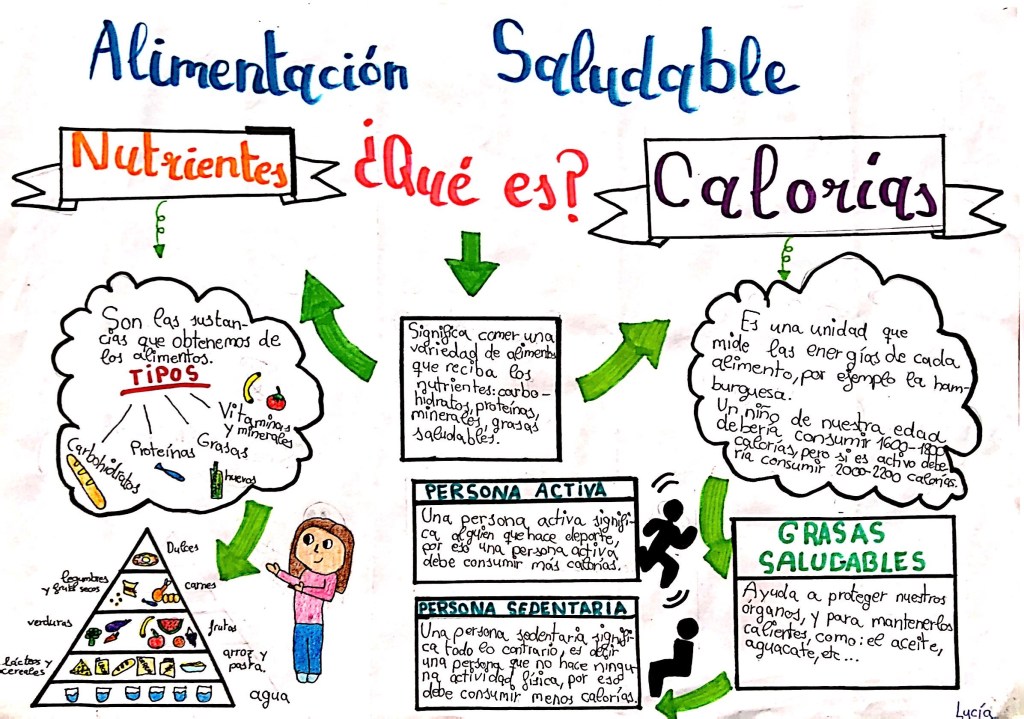 Alimentación Saludable
Nutrientes
¿Qué es?
Calorías
Son las sustan-
cias que obtenemos de
los alimentos.
TIPOS
Carbohidratos
Proteínas
Grasas
Vitaminas
y minerales
huevos
Significa comer una
variedad de alimentos
que reciba los
nutrientes: carbo-
hidratos, proteínas,
minerales, grasas
saludables.
Es una unidad que
mide las energías de cada
alimento, por ejemplo la ham-
burguesa.
Un niño de nuestra edad
debería consumir 1600-1800
calorías, pero si es activo debe-
ría consumir 2000-2200 calorías.
PERSONA ACTIVA
Una persona activa signifi-
ca alguien que hace deporte,
por eso una persona activa
debe consumir más calorías.
PERSONA SEDENTARIA
Una persona sedentaria signifi-
ca todo lo contrario, es decir
una persona que no hace ningu-
na actividad física, por eso
debe consumir menos calorías.
GRASAS
SALUDABLES
Ayuda a proteger nuestros
órganos, y para mantenerlos
calientes, como: el aceite,
aguacate, etc...
Dulces
legumbres
y frutos secos
carnes
verduras
frutas
lácteos y
cereales
arroz y
pasta.
agua
Lucía